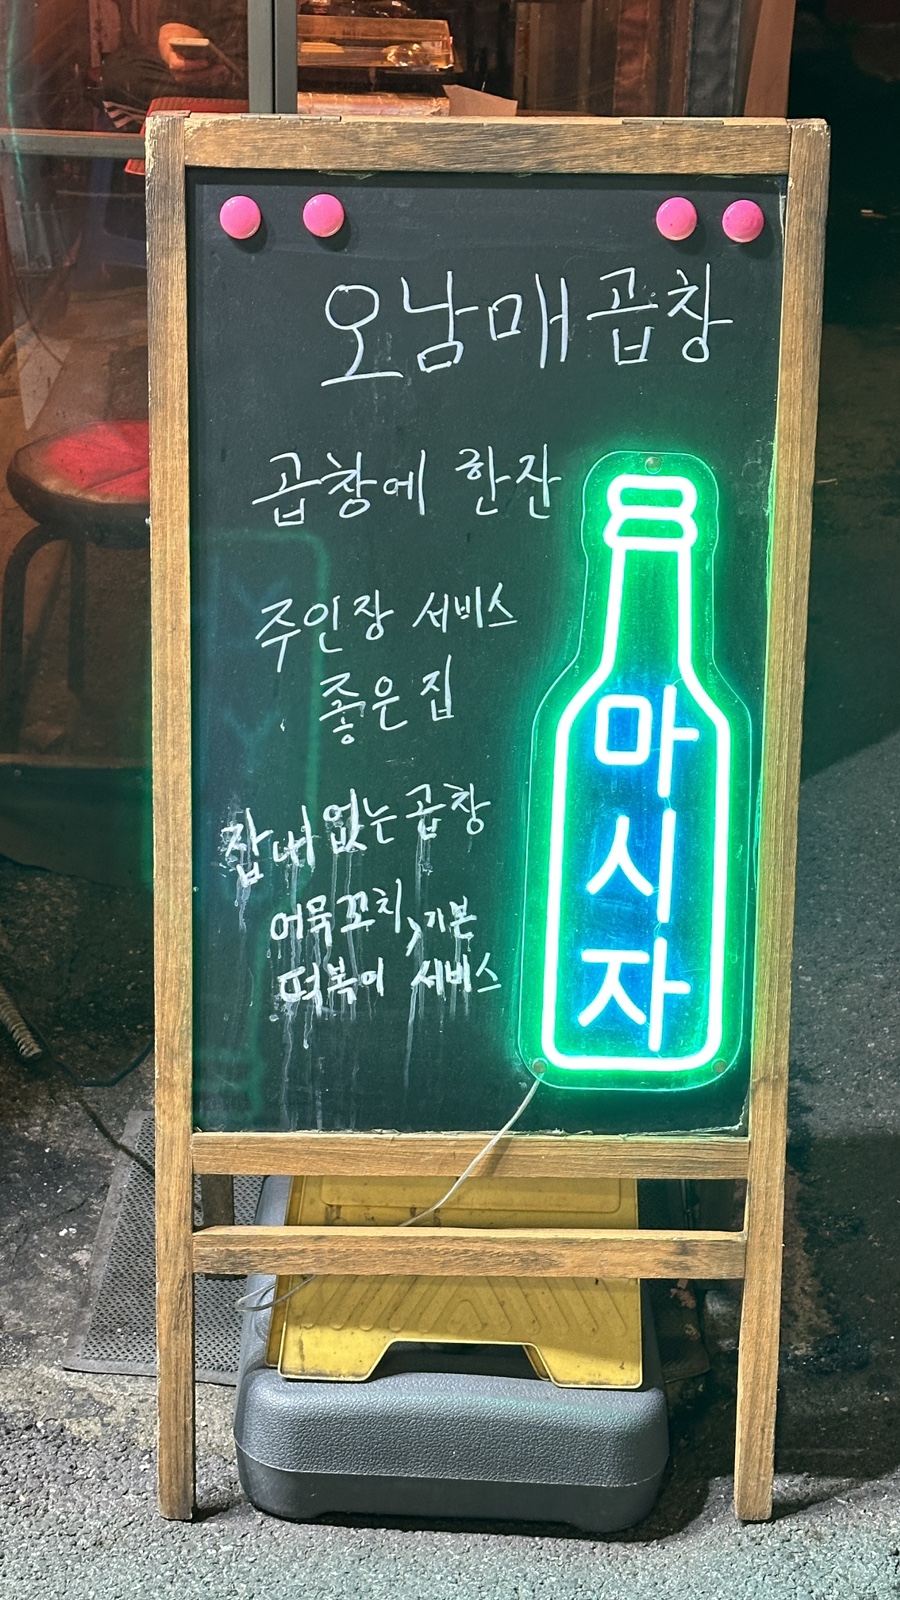 오남매 곱창
곱창에 한잔
주인장 서비스
좋은 집
잡내 없는 곱창
어묵꼬치, 기본
떡볶이 서비스
마시자